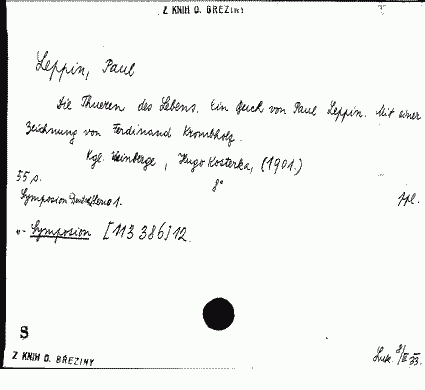 Z KNIH O. BŘEZINY
Leppin, Paul
Die Thueren des Lebens. Ein Buch von Paul Leppin. Mit einer
Zeichnung von Ferdinand Krombholz.
Kgl. Weinberge, Hugo Kosterka, (1901.)
8°
55 s.
Symposion 1. ppl.
- Symposion [113 386] 12.
S
Z KNIH O. BŘEZINY
Luk. 8/III 33.